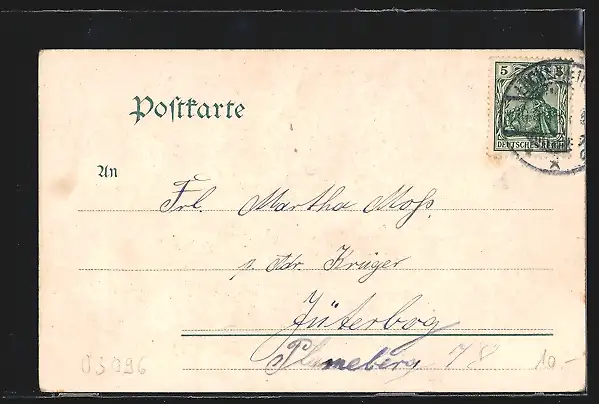 Postkarte
5
DEUTSCHES REICH
An
Frl. Martha Moss.
p. Adr. Krüger
Jüterbog
78
05096
10.-